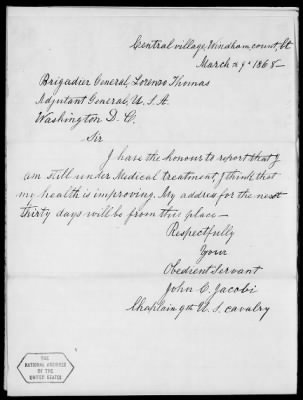 Central village, Windham, count, Ct
March 29th 1868-
Brigadier General, Lorenzo Thomas
Adjutant General, U. S. A.
Washington D. C.
Sir
I have the honour to report that I
am still under Medical treatment I think that
my health is improving. My address for the next
thirty days will be from this place-
Respectfully
Your
Obedient Servant
John C. Jacobi
Chaplain 9th U. S. Cavalry
THE
NATIONAL ARCHIVES
OF THE
UNITED STATES